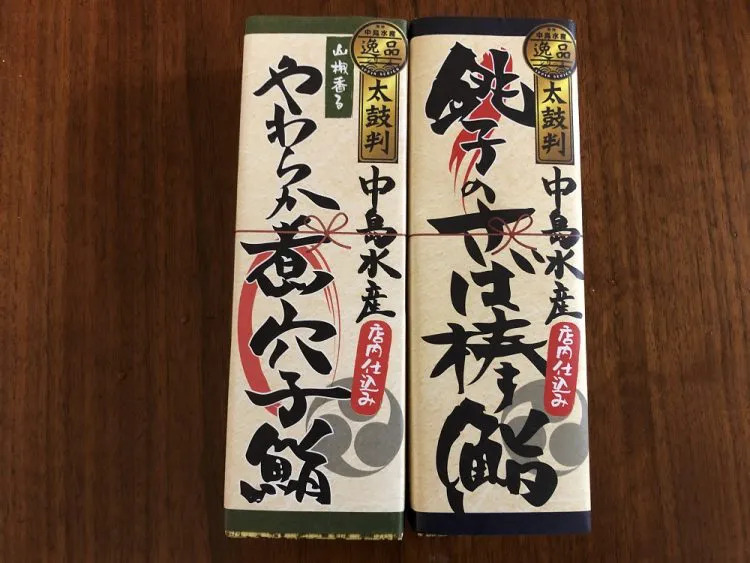 山椒香る
やわらか煮穴子鮨
中島水産
逸品
太鼓判
中島水産
店内仕込み
銚子のさば棒鮨
中島水産
逸品
太鼓判
中島水産
店内仕込み